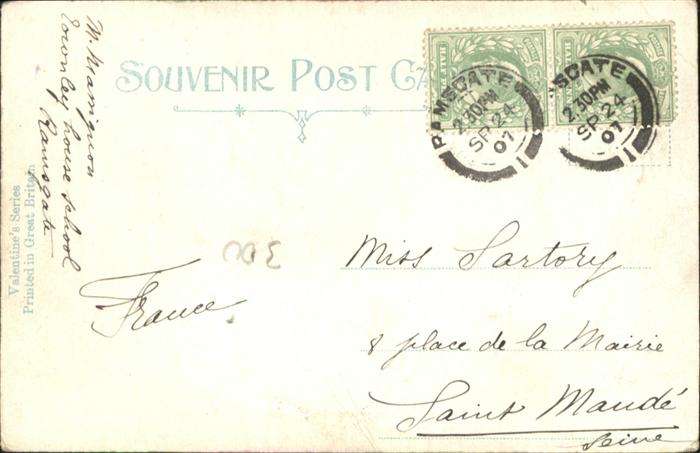 SOUVENIR POST CA
RAMSGATE
2.30PM
SP 24
07
1
SGATE
2.30PM
SP 24
07
1
Townley house School
Ramsgate
Valentine's Series
Printed in Great Britain
300
Miss Sartory
France
8 place de la Mairie
Saint Mandé
Seine